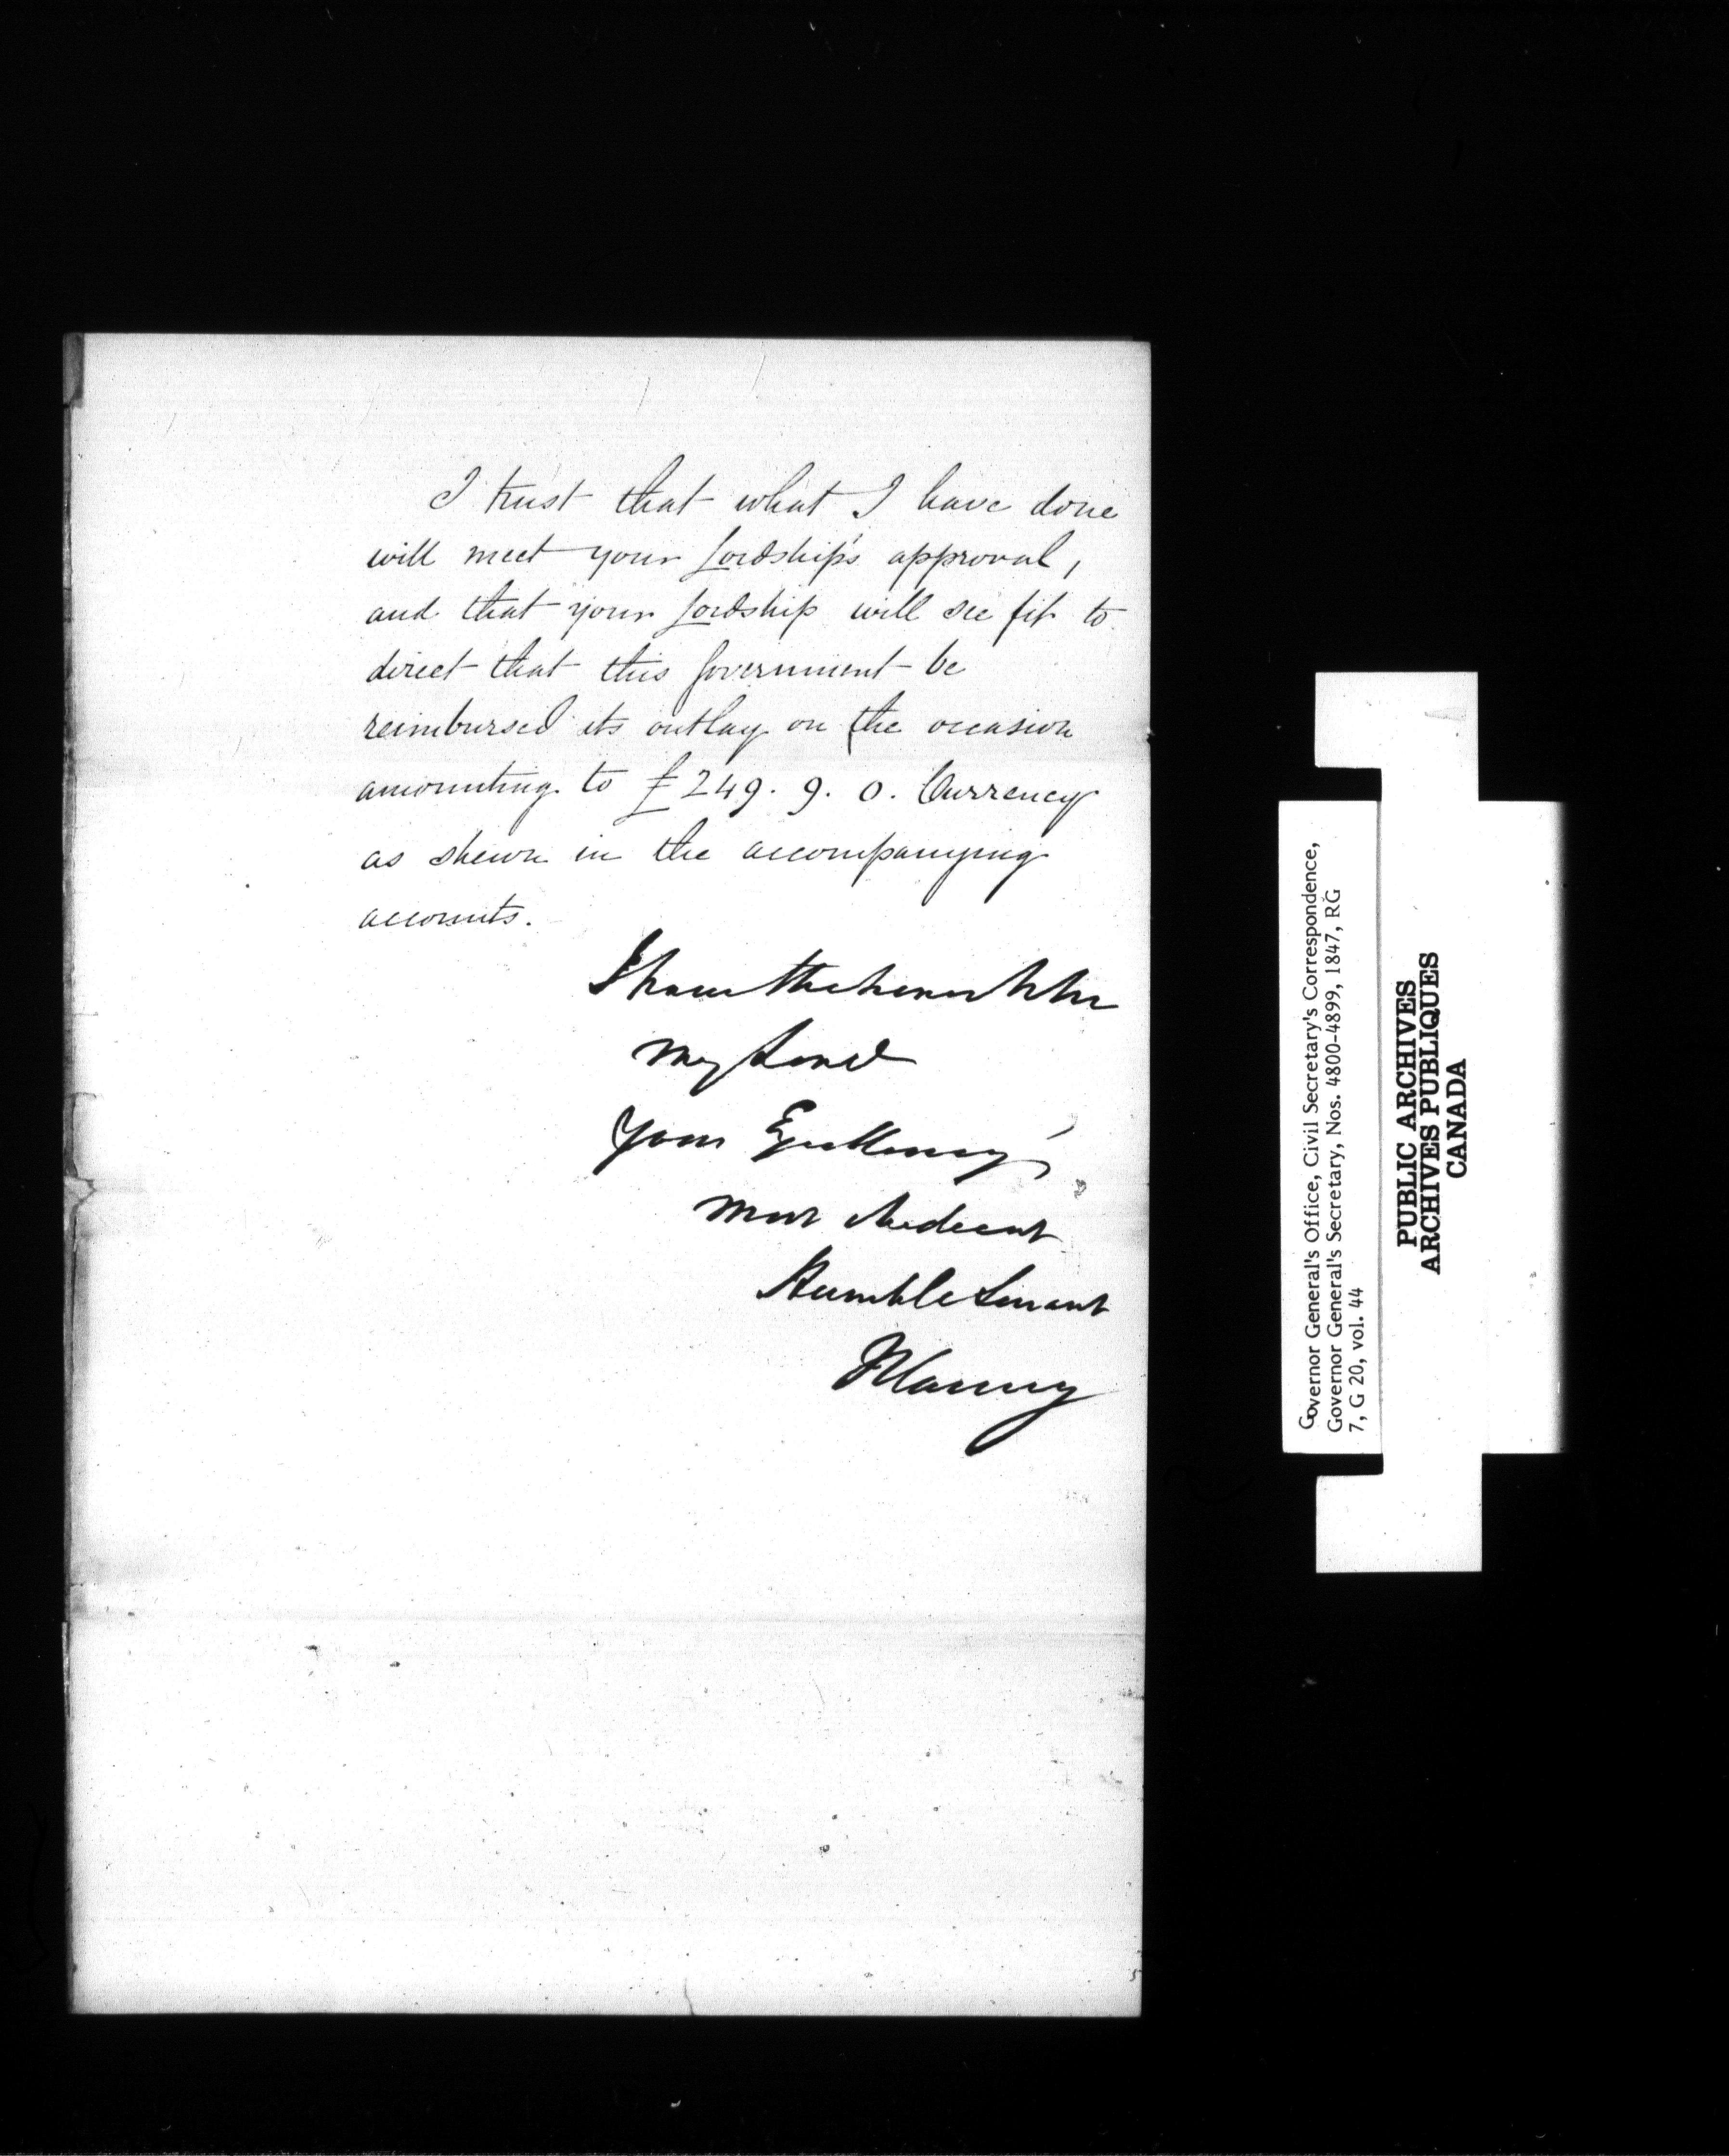 I trust that what I have done
will meet your Lordship's approval,
and that your Lordship will see fit to
direct that this Government be
reimbursed its outlay on the occasion
amounting to £249. 9. 0. Currency
as shewn in the accompanying
accounts.
I have the honor to be
My Lord
Your Excellency's
most obedient
Humble Servant
Governor General's Office, Civil Secretary's Correspondence,
Governor General's Secretary, Nos. 4800-4899, 1847, RG
7, G 20, vol. 44
PUBLIC ARCHIVES
ARCHIVES PUBLIQUES
CANADA